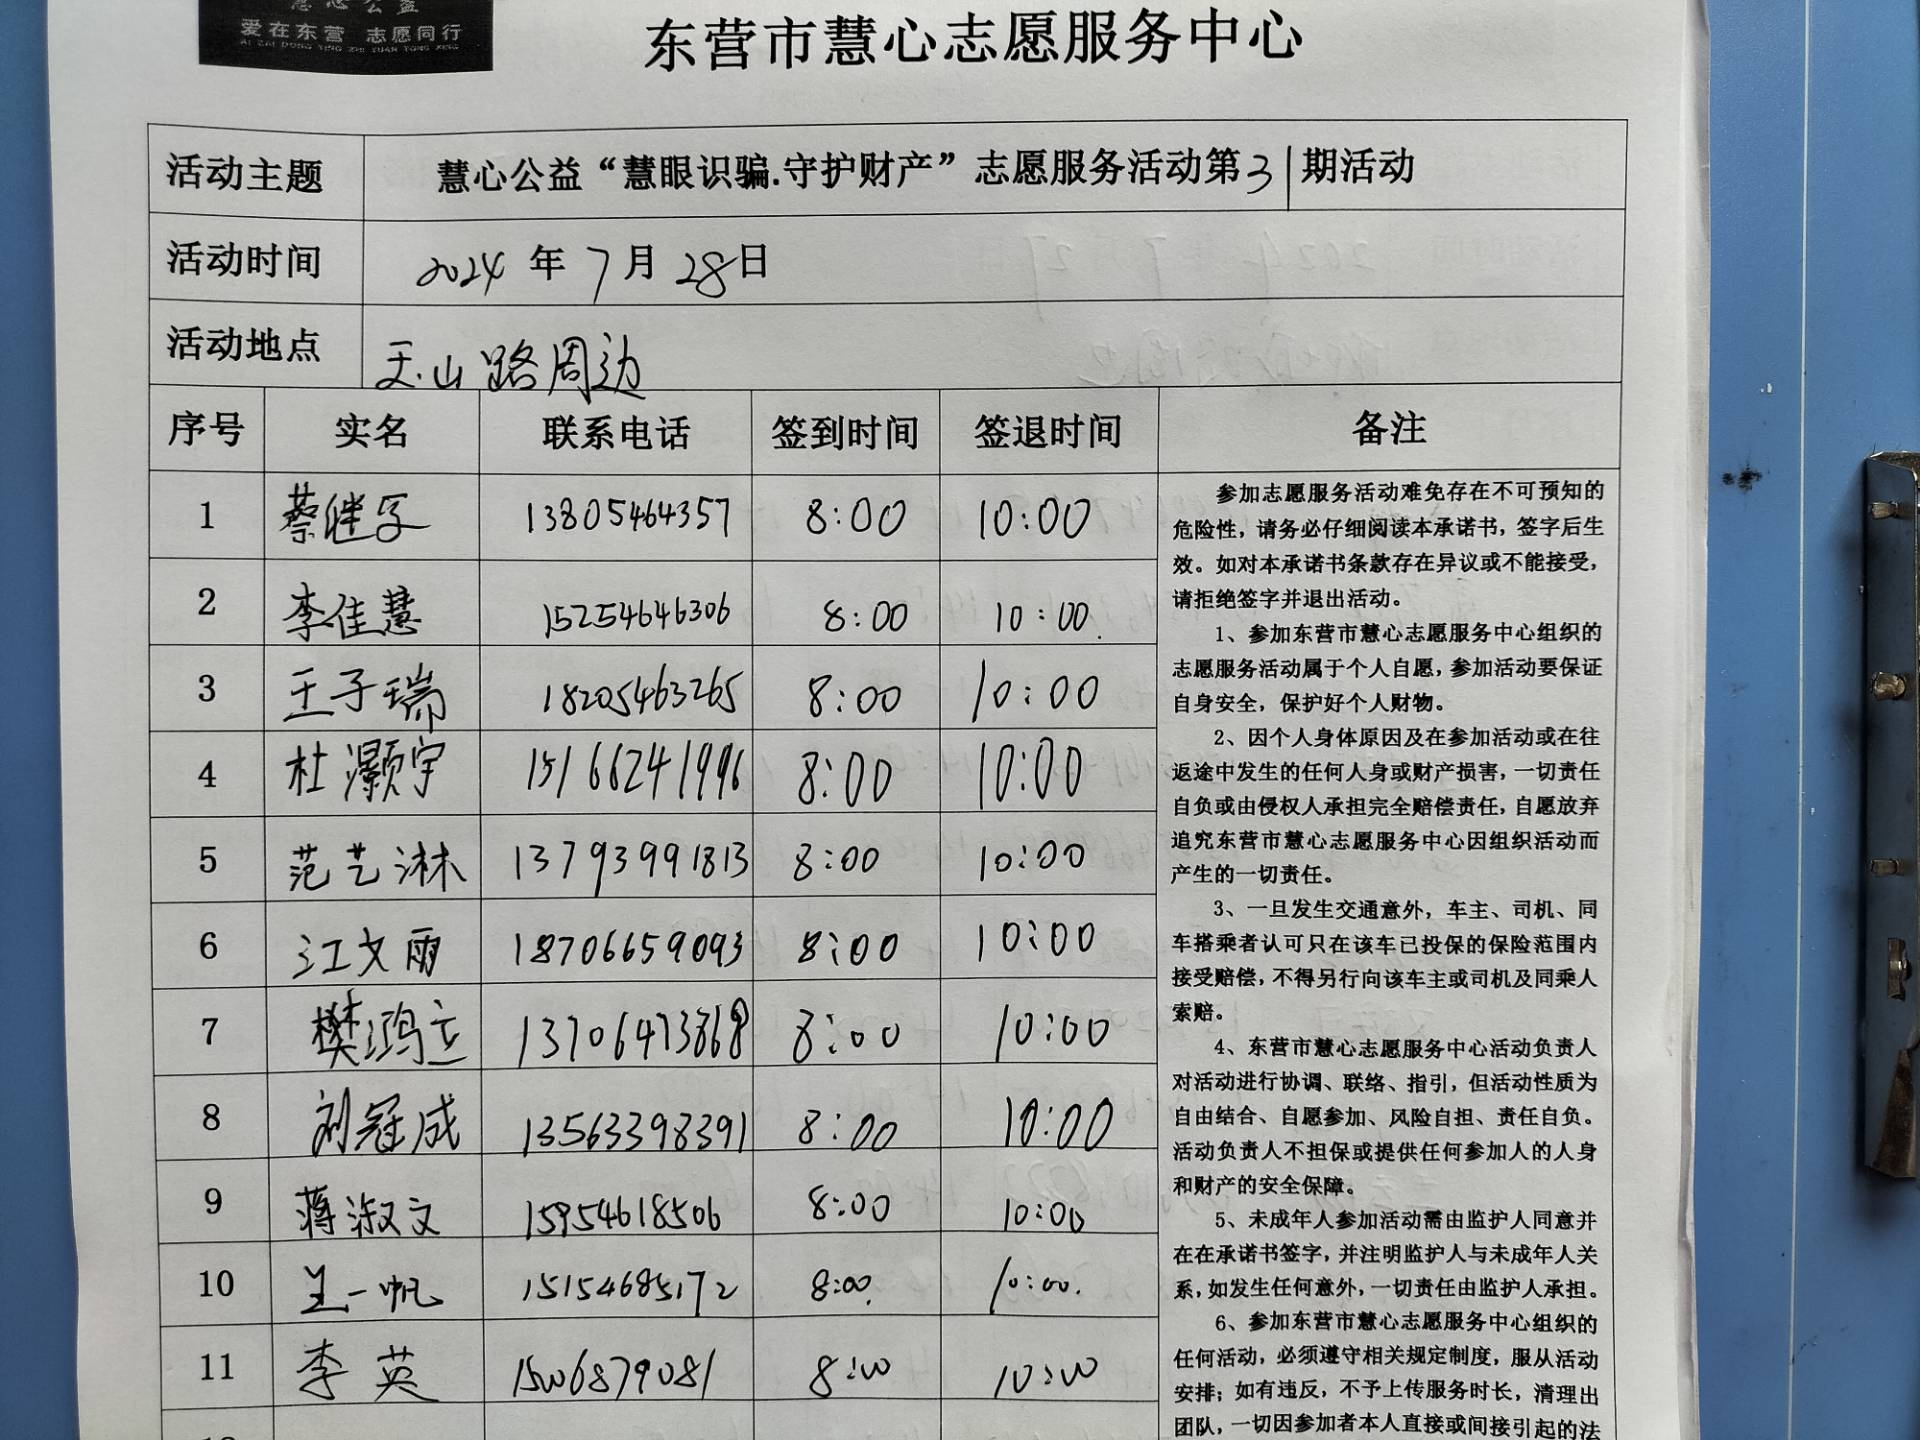 慧心公益
爱在东营 志愿同行
AI ZAI DONG YING ZHI YUAN TONG XING
东营市慧心志愿服务中心
活动主题 慧心公益“慧眼识骗.守护财产”志愿服务活动第31期活动
活动时间 2024年7月28日
活动地点 玉山路周边
序号 实名 联系电话 签到时间 签退时间 备注
1 蔡继字 13805464357 8:00 10:00
2 李佳慧 15254646306 8:00 10:00.
3 王子瑞 18205463265 8:00 10:00
4 杜灏宇 15166241996 8:00 10:00
5 范艺淋 13793991813 8:00 10:00
6 江文雨 18706659093 8:00 10:00
7 樊鸿立 13706473868 8:00 10:00
8 刘冠成 13563398391 8:00 10:00
9 蒋淑文 15954618506 8:00 10:00
10 王一帆 15154685172 8:00. 10:00.
11 李英 15006879081 8:00 10:00
参加志愿服务活动难免存在不可预知的
危险性，请务必仔细阅读本承诺书，签字后生
效。如对本承诺书条款存在异议或不能接受，
请拒绝签字并退出活动。
1、参加东营市慧心志愿服务中心组织的
志愿服务活动属于个人自愿，参加活动要保证
自身安全，保护好个人财物。
2、因个人身体原因及在参加活动或在往
返途中发生的任何人身或财产损害，一切责任
自负或由侵权人承担完全赔偿责任，自愿放弃
追究东营市慧心志愿服务中心因组织活动而
产生的一切责任。
3、一旦发生交通意外，车主、司机、同
车搭乘者认可只在该车已投保的保险范围内
接受赔偿，不得另行向该车主或司机及同乘人
索赔。
4、东营市慧心志愿服务中心活动负责人
对活动进行协调、联络、指引，但活动性质为
自由结合、自愿参加、风险自担、责任自负。
活动负责人不担保或提供任何参加人的人身
和财产的安全保障。
5、未成年人参加活动需由监护人同意并
在在承诺书签字，并注明监护人与未成年人关
系，如发生任何意外，一切责任由监护人承担。
6、参加东营市慧心志愿服务中心组织的
任何活动，必须遵守相关规定制度，服从活动
安排；如有违反，不予上传服务时长，清理出
团队，一切因参加者本人直接或间接引起的法